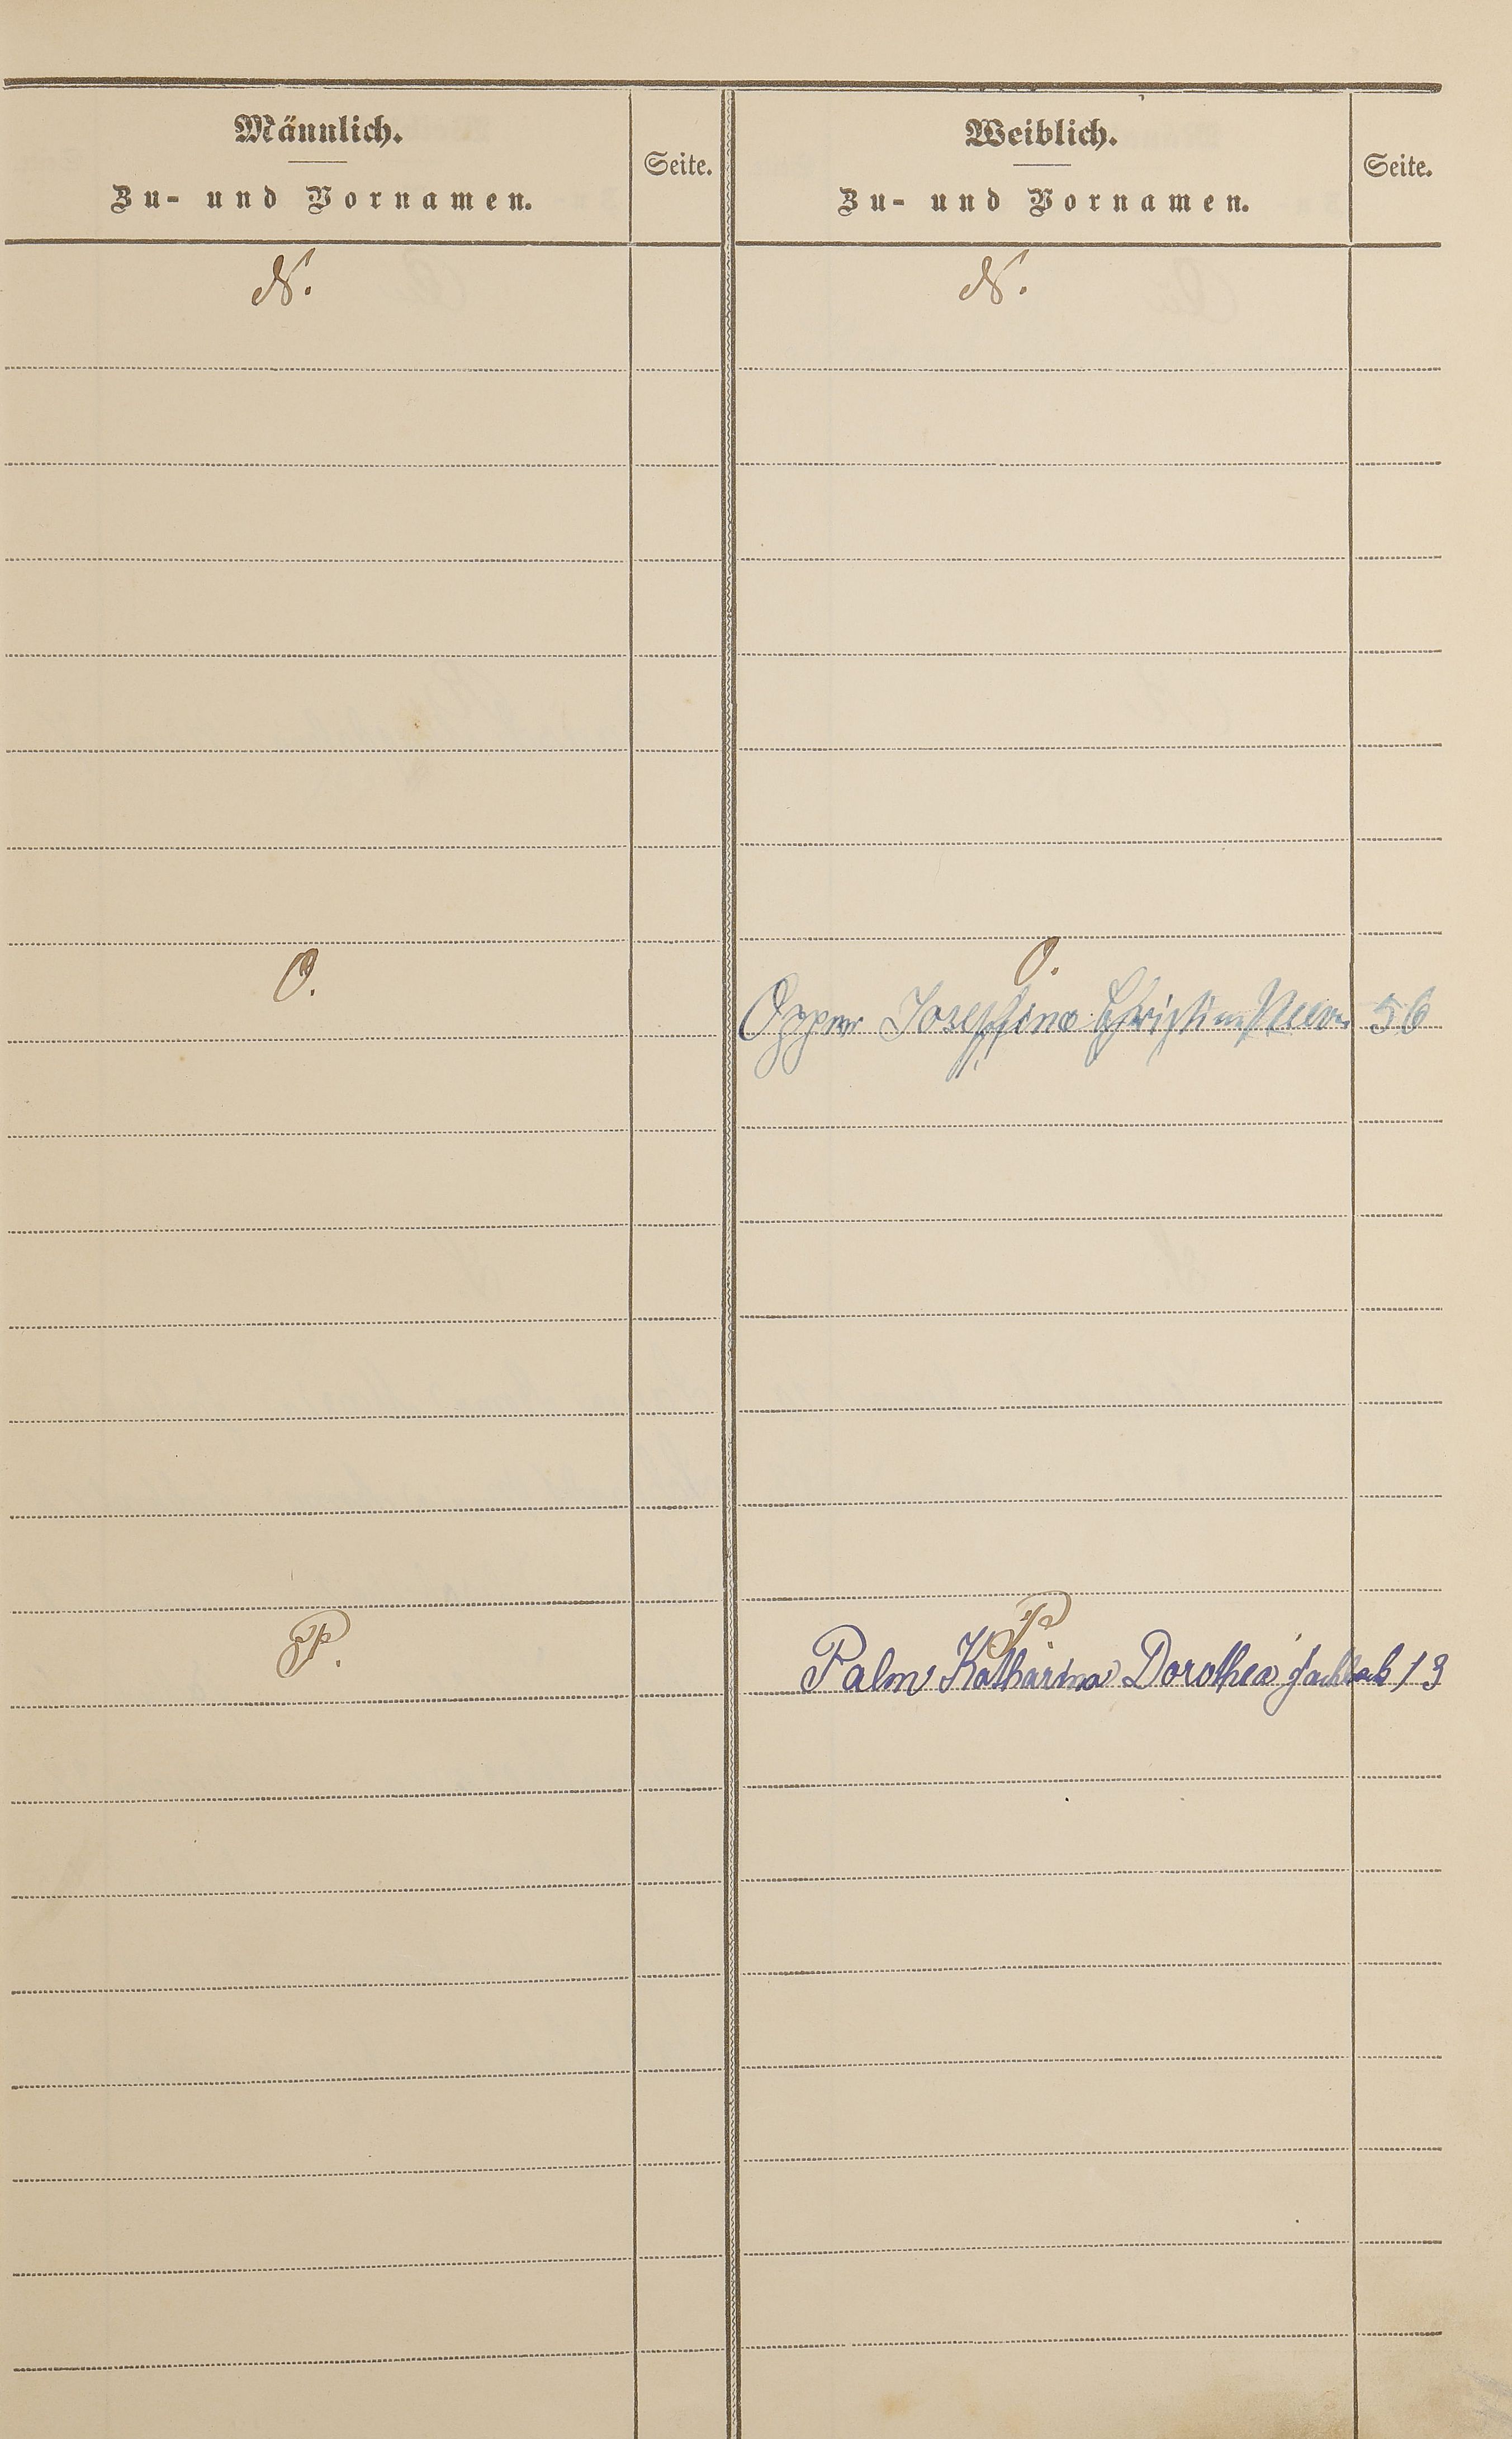 Männlich.
Zu- und Vornamen.
Seite.
Weiblich.
Zu- und Vornamen.
Seite.
N.
N.
O.
O.
Josephine 56
P.
P.
Palm Katharina Dorothea 19